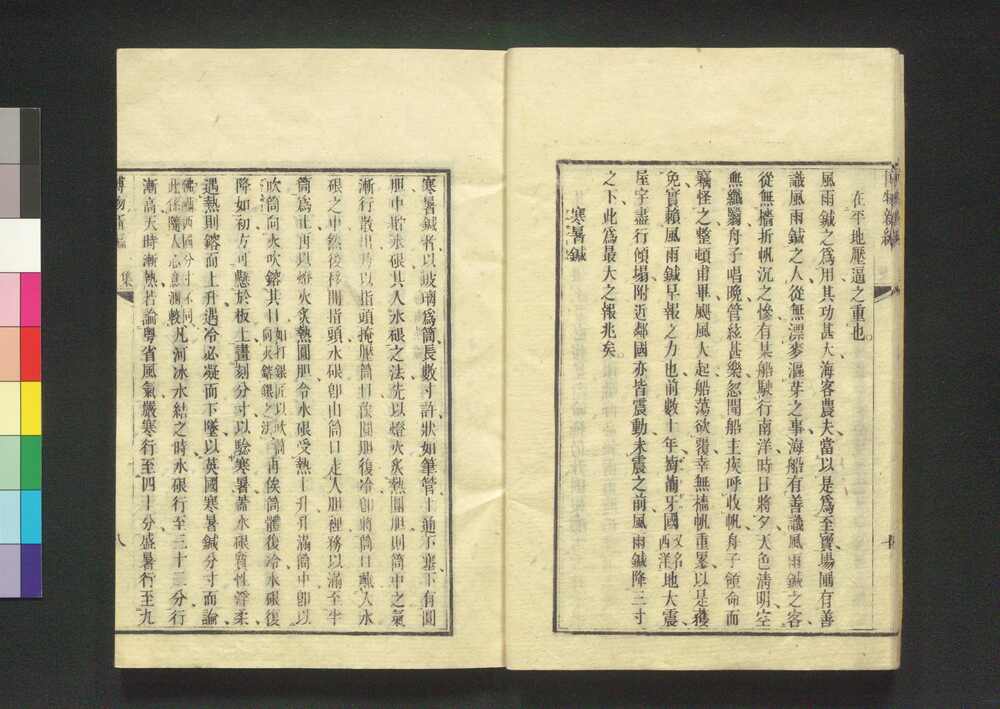 在平地壓逼之重也。
風雨鍼之爲用其功甚大海客農夫當以是爲至寶場圃有善
識風雨鍼之人從無漂麥漚芽之事海船有善識風雨鍼之客
從無檣折帆沉之慘有某船駛行南洋時日將夕天色淸明空
無纖翳舟子唱晩管絃甚樂忽聞船主疾呼收帆舟子領命而
竊怪之整頓甫畢颶風大起船蕩欲覆幸無檣帆重累以是獲
免實賴風雨鍼早報之力也前數十年葡萄牙國又名西洋地大震
屋宇盡行傾塌附近鄰國亦皆震動未震之前風雨鍼降三寸
之下此爲最大之報兆矣。
寒暑鍼
寒暑鍼者以玻璃爲筒長數寸許狀如筆管上通下塞下有圓
胆中貯水銀其入水銀之法先以燈火炙熱圓胆則筒中之氣
漸行散出乃以指頭掩壓筒口俟圓胆復冷卽將筒口蘸入水
銀之中然後移開指頭水銀卽由筒口走入胆裡務以滿至半
筒爲止再以燈火炙熱圓胆令水銀受熱上升升滿筒中卽以
吹筒向火吹鎔其口如打銀匠以吹筒向火鎔銀之法再俟筒體復冷水銀復
降如初方可懸於板上畫刻分寸以騐寒暑蓋水銀質性浮柔
遇熱則鎔而上升遇冷必凝而下墜以英國寒暑鍼分寸而論
西國分寸不同此係隨人心意測較凡河冰水結之時水銀行至三十二分行
漸高天時漸熱若論粤省風氣嚴寒行至四十分盛暑行至九
博物新編
集
八